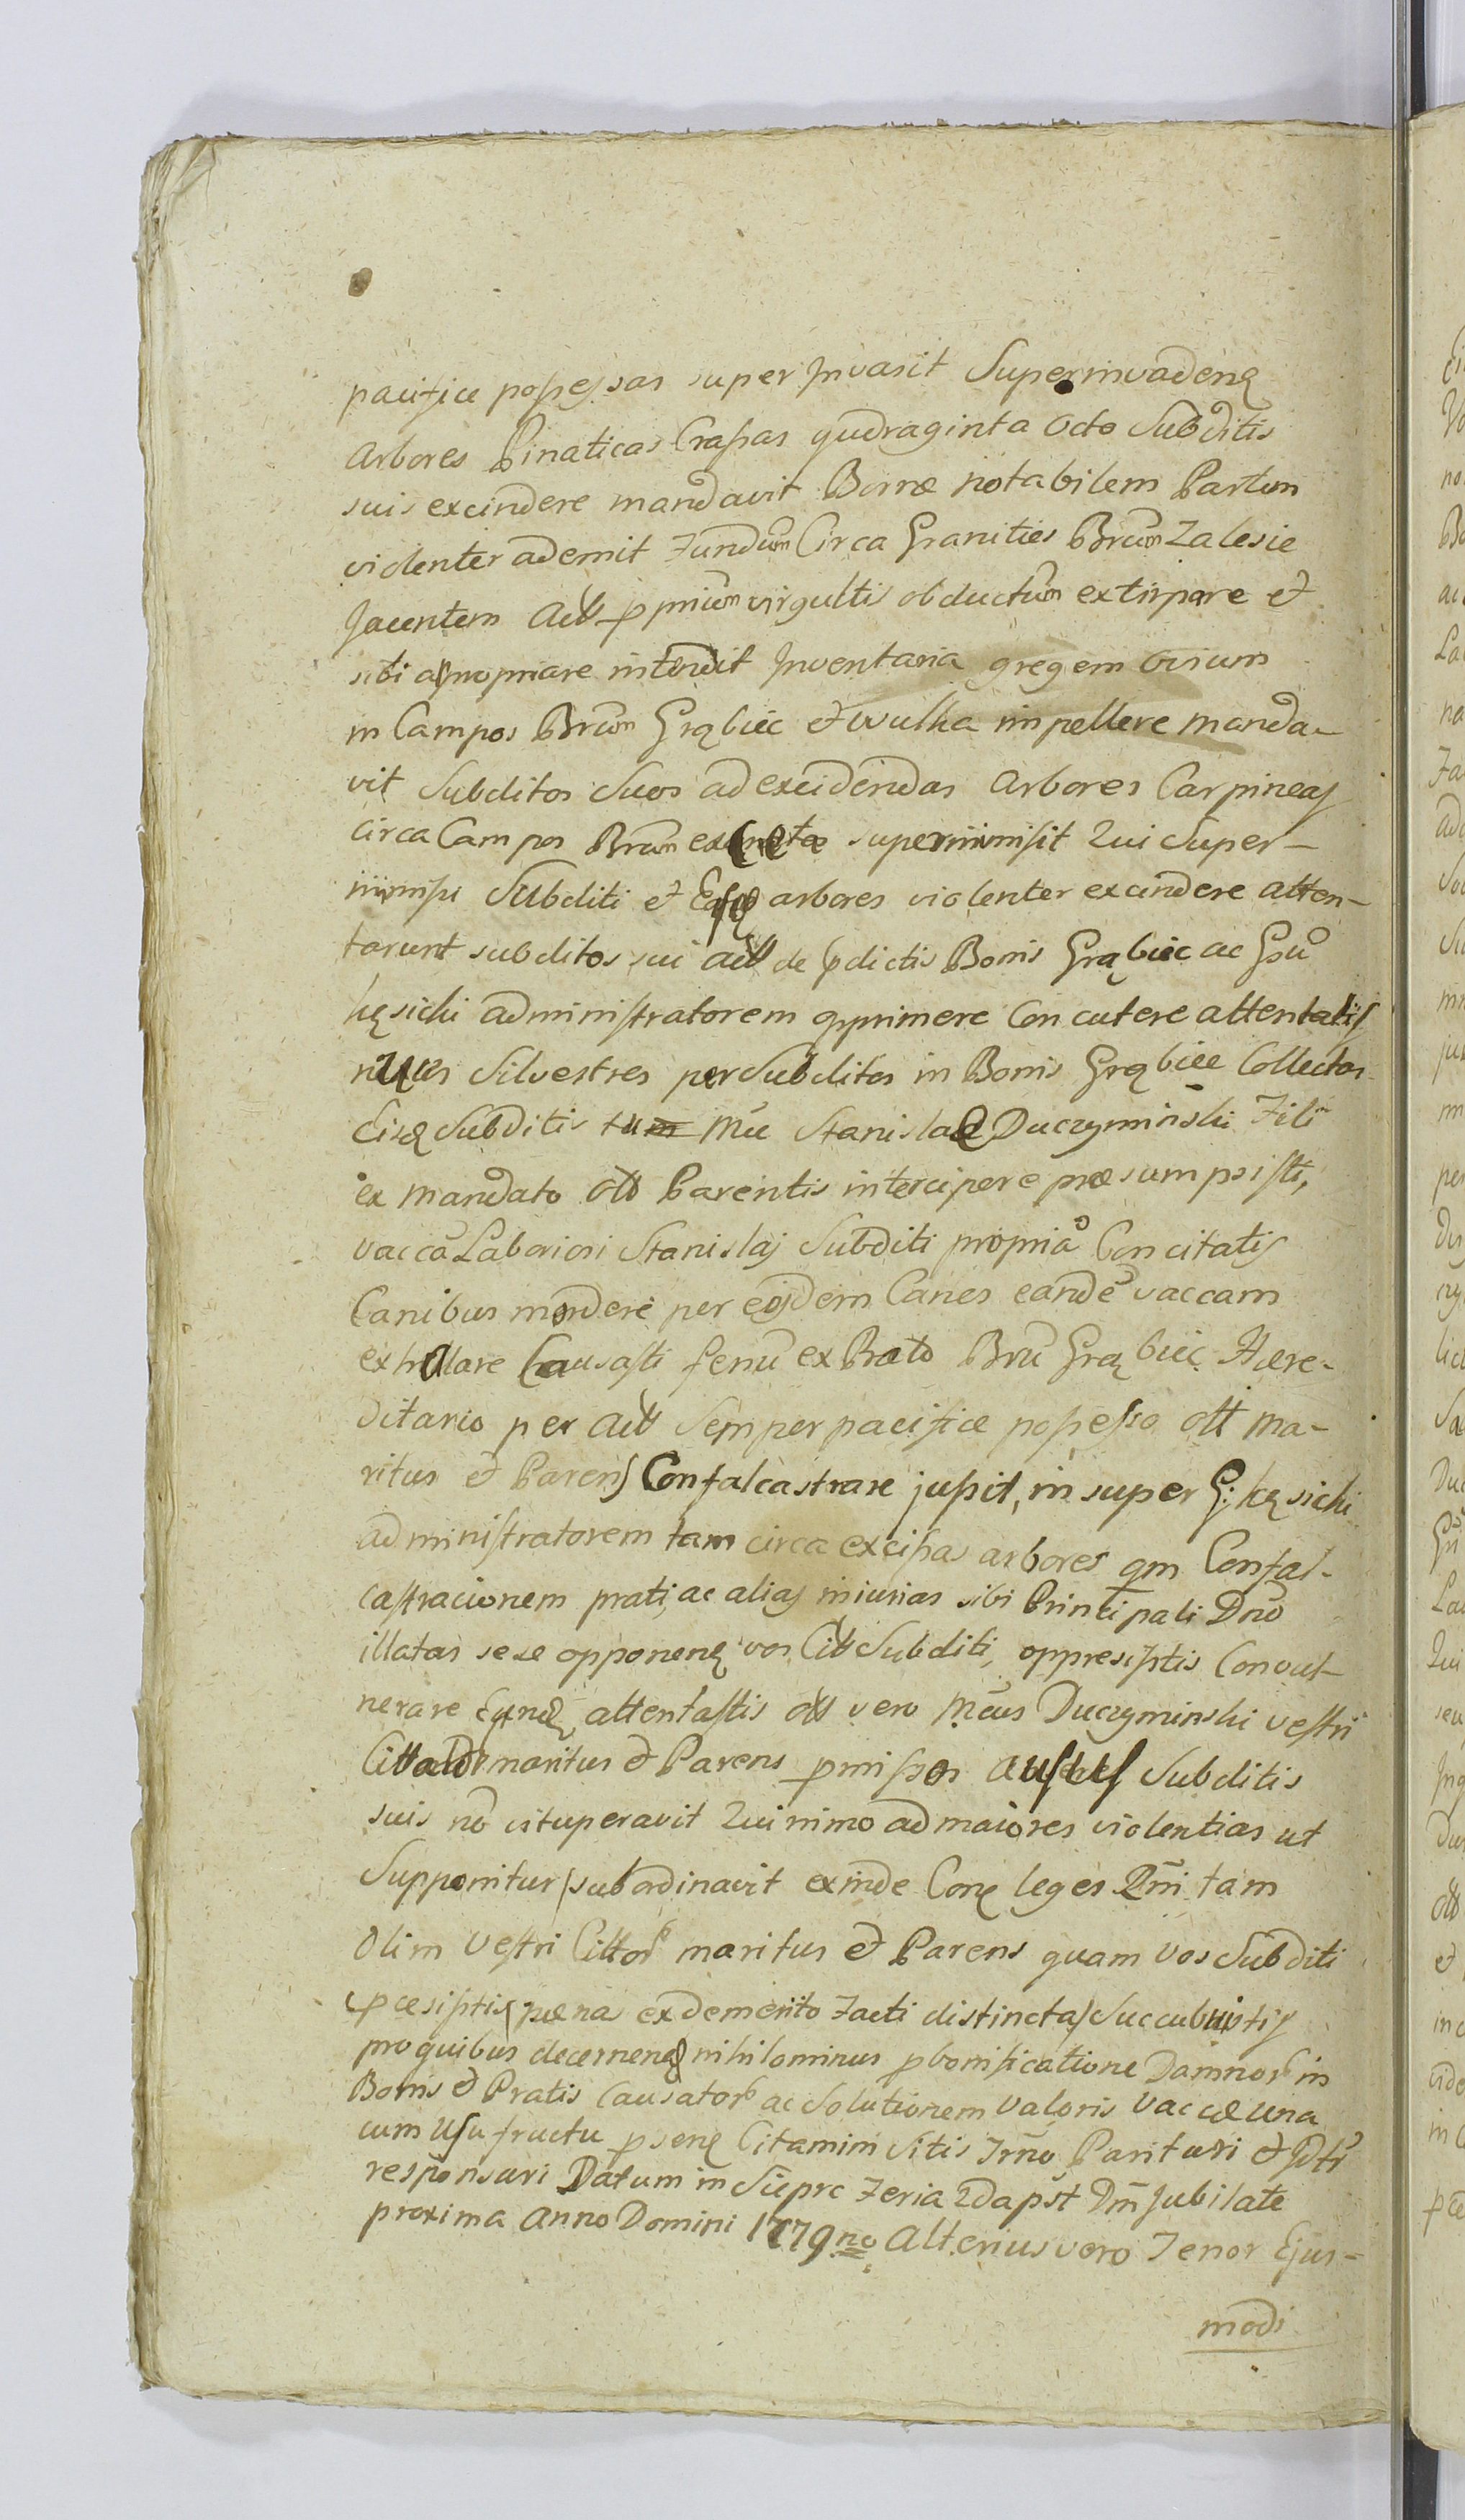 pacifice possessas super Invasit Superinvadenę
Arbores Pinaticas Crassas qudraginta Octo Subditis
suis excindere mandavit Borræ notabilem Partem
violenter ademit Fundum Circa Granities Brum Zalesie
Jacentem Act ppnium virgultis obductum extirpare et
sibi apropriare intendit Inventaria gregem Ovium
in Campos Brum Grąbiec et Wulka impellere manda-
vit Subditos Suos ad excidendas Arbores Carpineas
circa Campos Brum superimmisit Qui Super-
immisi Subditi et arbores violenter excindere atten-
tarunt subditos sui act de pdictis Bonis Grąbiec ac Gsu
Kęsicki administratorem opprimere Concutere attentatis
nuces Silvestres per Subditos in Bonis Grąbiec Collectas
Eisd Subditis tu Mce Stanislae Duczyminski Fili
ex mandato Ott Parentis intercipere præsumpsisti,
vaccã Laboriosi Stanislaj Subditi propriã Concitatis
Canibus mordere per eosdem Canes eandẽ vaccam
exhalare Causasti fenũ ex Prato Brũ Grąbiec Hære-
ditario per Act Semper pacifice possesso Ott Ma-
ritus et Parens Confalcastrare jussit, in super G: Kęsicki
administratorem tam circa excissas arbores qm Confal-
castracionem prati, ac alias iniurias sibi Principali Dno
illatas sese opponenę vos Citt Subditi, oppressistis Convul-
nerare Eund attentastis Ott vero Mcus Duczyminski vestri
maritus et Parens pmissos ausus Subditis
suis nõ vituperavit Quinimo ad maiores violentias ut
Supponitur subordinavit exinde Conę leges Qm tam
Olim Vestri Cittor maritus et Parens quam Vos Subditi
pcesistis pæna ex demerito Facti distincta Succubuistis
pro quibus decernend nihilominus pbonificatione Damnor in
Bonis et Pratis Causator ac Solutionem Valoris Vaccæ una
cum Usufructu psenę Citamini Sitis Trno Parituri et
responsuri Datum in Sieprc Feria 2da pst Dm Jubilate
proxima Anno Domini 1779no Alterius vero Tenor Ejus-
modi